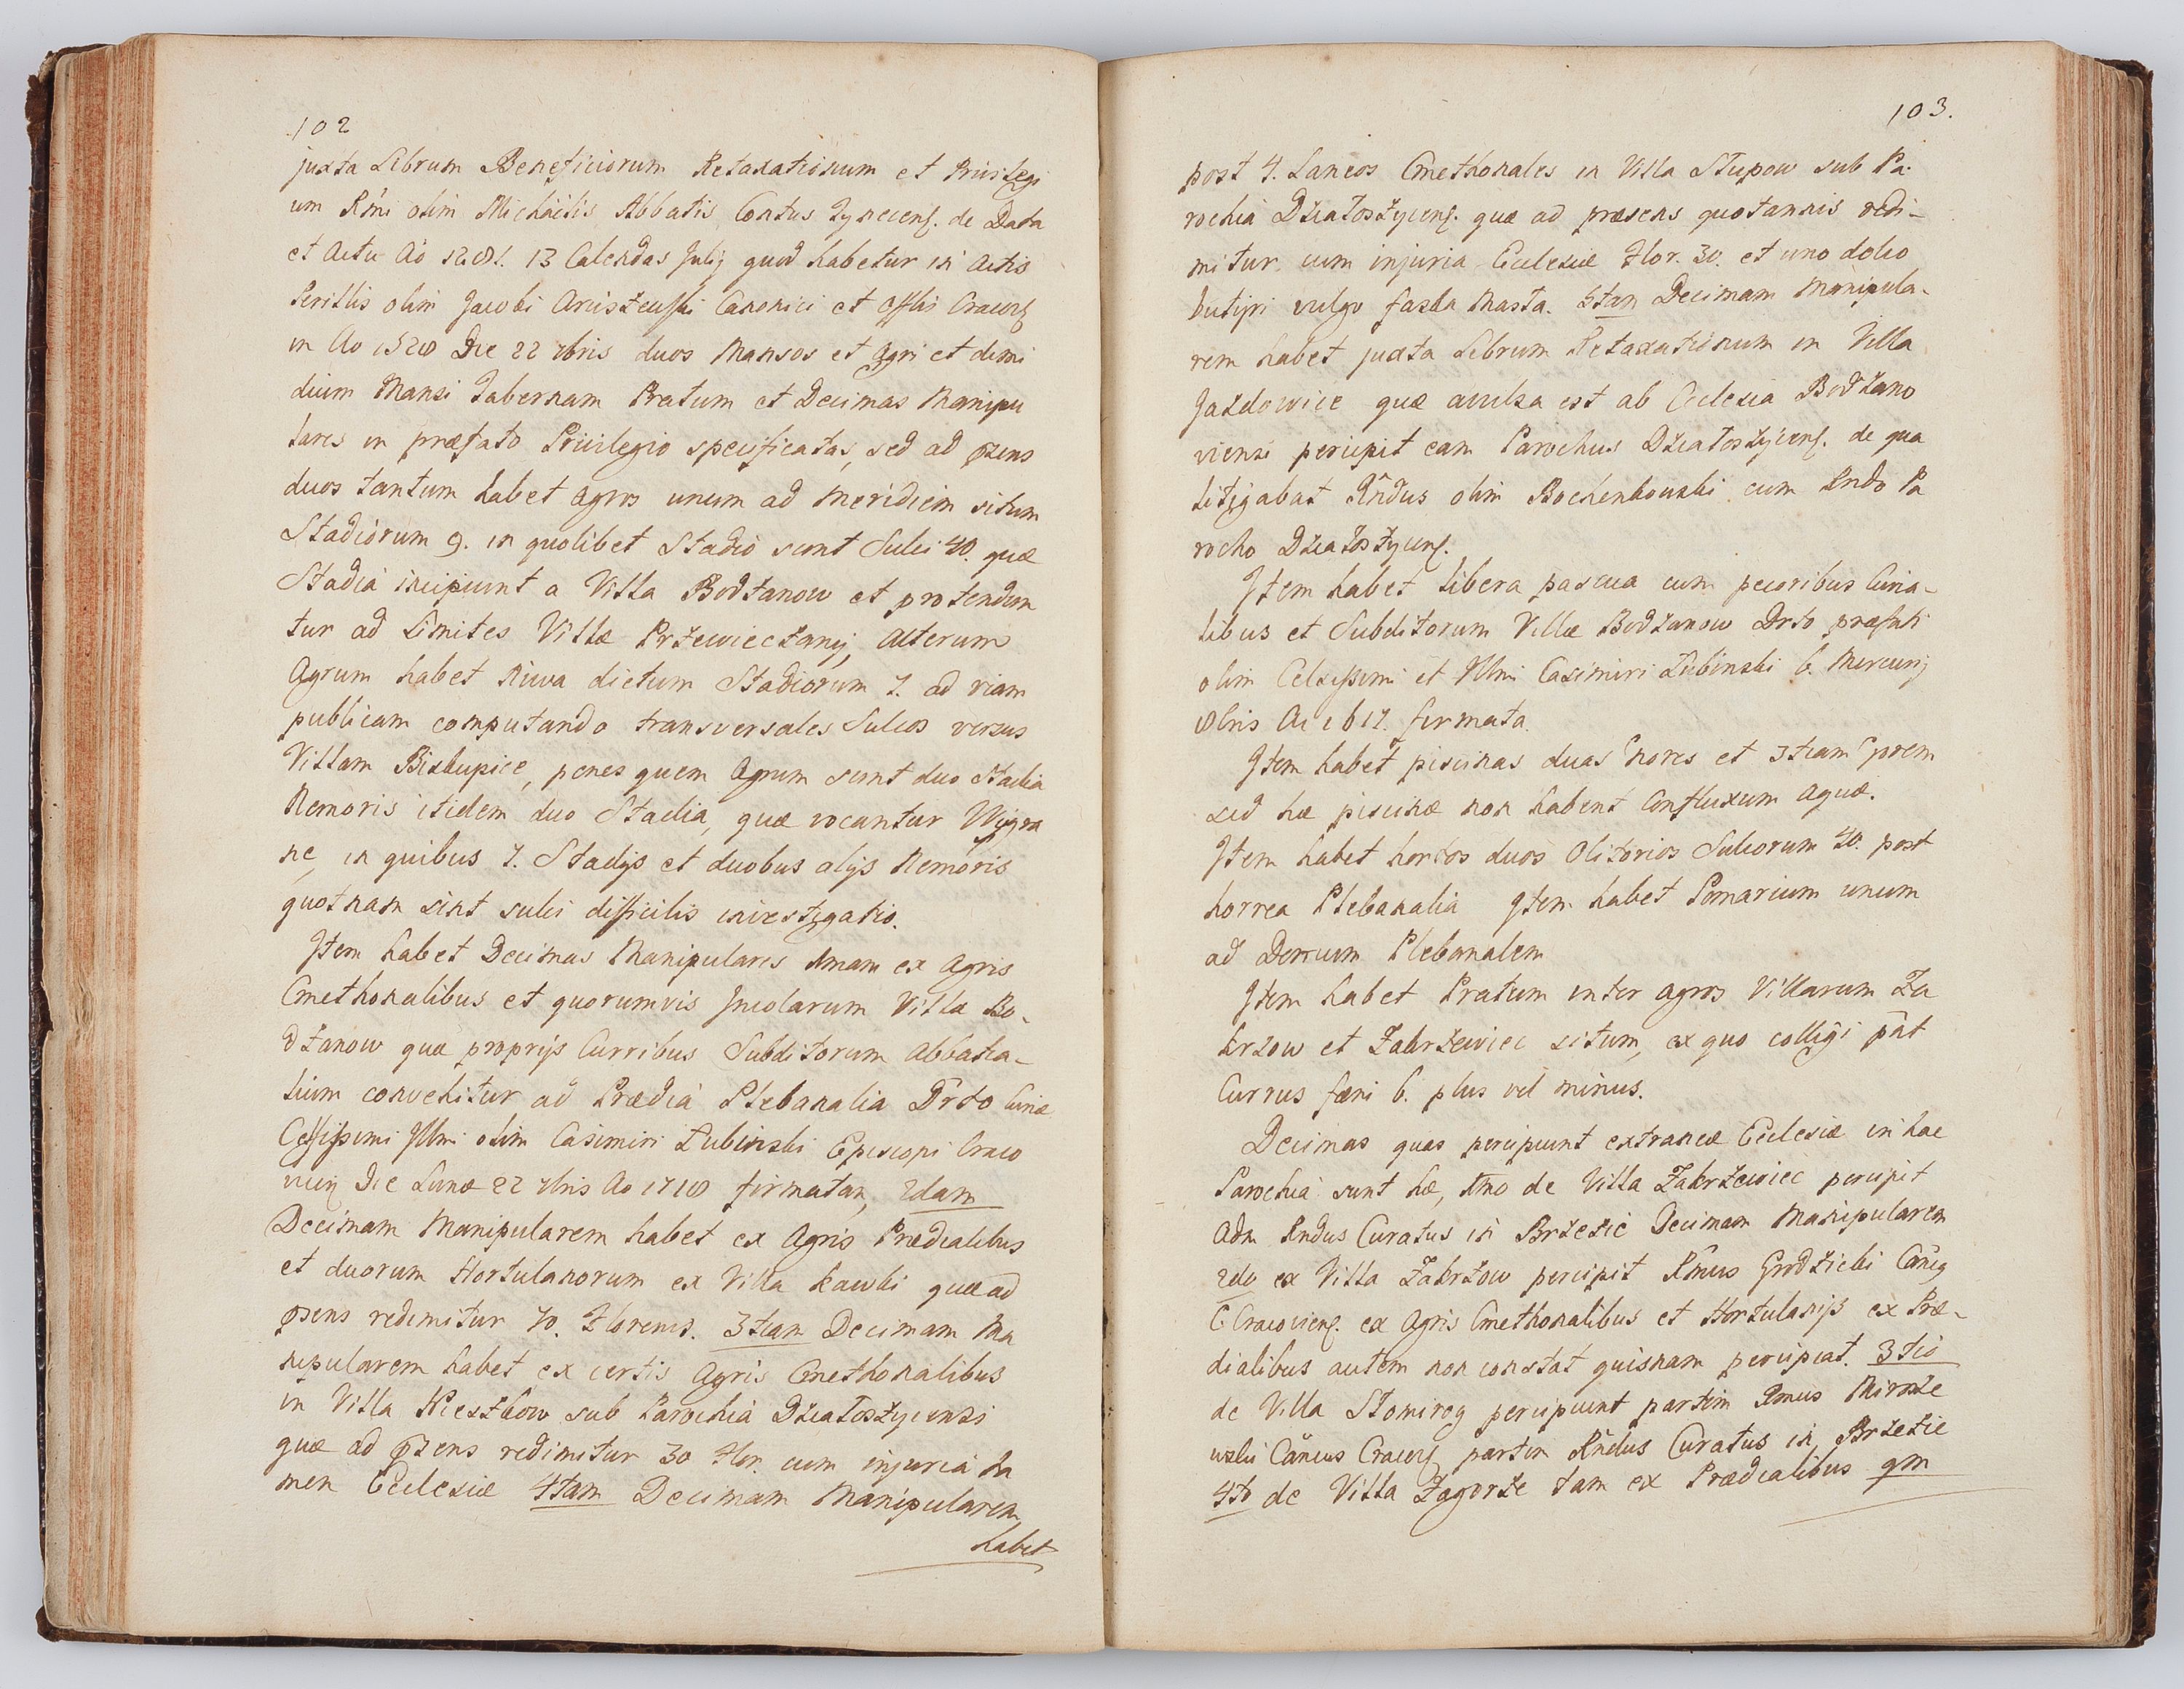 102
juxta Librum Beneficiorum Retaxationum et Privilegi
um Rmi olim Michaelis Abbatis Contus Tynecens. de Data
et Actu Ao 13 Calendas Julij quod habetur in Actis
olim Jacobi Canonici et Offlis Cracov
in Ao Die 22 7bris duos Mansos et Agri et dimi
dium Mansi Tabernam Pratum et Decimas Manipu
lares in præfato Privilegio specificatas, sed ad pzens
duos tantum habet agros unum ad Meridiem situm
Stadiorum 9. in quolibet Stadio sunt Sulci 40. quæ
Stadia incipiunt a Villa Bodzanow et protendun
tur ad Limites Villæ Przewieczany, Alterum
Agrum habet Niwa dictum Stadiorum 7. ad viam
publicam computando transversales Sulcos versus
Villam Biskupice, penes quem Agrum sunt duo Stadia
Nemoris itidem duo Stadia, quæ vocantur Wygra
ne, in quibus 7. Stadijs et duobus alijs Nemoris
quotnam sint sulci difficilis investigatio.
Item habet Decimas Manipulares 1mam ex Agris
Cmethonalibus et quorumvis Incolarum Villa Bo-
dzanow quæ proprijs Curribus Subditorum Abbatia-
lium convehitur ad Prædia Plebanalia Drto Curiæ
Celsissimi Illmi olim Casimiri Łubinski Episcopi Craco
vien Die Lunæ 22 7bris Ao 1718 firmatam, 2dam
Decimam Manipularem habet ex Agris Prædialibus
et duorum Hortulanorum ex Villa Kawki quæ ad
pzens redimitur 70. Florenis. 3tiam Decimam Ma
nipularem habet ex certis Agris Cmethonalibus
in Villa Nieszkow sub Parochia Dziatoszycensi
quæ ad pzens redimitur 30 Flor. cum injuria ta
men Ecclesiæ 4tam Decimam Manipularem
habet
103.
post 4. Laneos Cmethonales in Villa Słupow sub Pa-
rochia Dziatoszycens. quæ ad præsens quotannis redi-
mitur cum injuria Ecclesiæ Flor. 30. et uno dolio
butyri vulgo faska Masła. 5tam Decimam Manipula-
rem habet juxta Librum Retaxationum in Villa
Jazdowice quæ avulsa est ab Ecclesia Bodzano
viensi percipit eam Parochus Dziatoszycens. de qua
litigabat Rndus olim Bochenkowski cum Rndo Pa
rocho Dziatoszycens.
Item habet libera pascua cum pecoribus Curia-
libus et Subditorum Villæ Bodzanow Drto præfati
olim Celsissimi et Illmi Casimiri Łubinski 6. Mercurij
8bris Ao 1617. firmata.
Item habet piscinas duas nores et 3tiam prem
sed hæ piscinæ non habent Confluxum Aquæ.
Item habet hortos duos Olitorios Sulcorum 40. post
horrea Plebanalia Item habet Pomarium unum
ad Domum Plebanalem
Item habet Pratum inter agros Villarum Za
krzow et Zakrzewiec situm, ex quo colligi pnt
Currus fæni 6. plus vel minus.
Decimas quas percipiunt extraneæ Ecclesiæ in hac
Parochia sunt hæ, 1mo de Villa Zakrzewiec percipit
Adm Rndus Curatus in Brzezie Decimam Manipularem
2do ex Villa Zakrzow percipit Rmus Grodzicki Cang
C Cracoviens. ex Agris Cmethonalibus et Hortulanijs ex Præ-
dialibus autem non constat quisnam percipiat. 3tio
de Villa Słomirog percipiunt partim Rmus Mirosze
wski Cancus Cracov partim Rndus Curatus in Brzezie
4to de Villa Zagorze tam ex Prædialibus qm